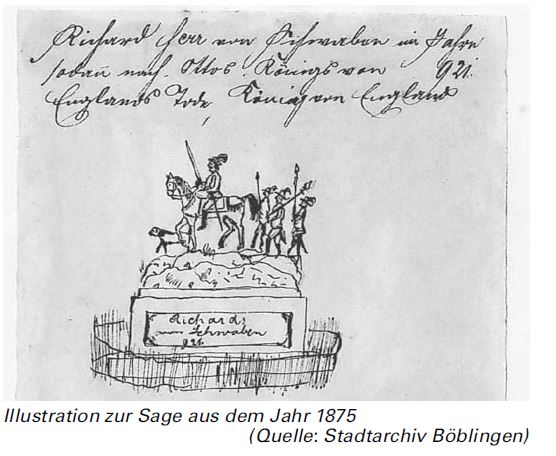 Richard Herr von Schwaben im Jahre
sodann nach Ottos Königs von 921.
Englands Tode, König von England
Richard,
von Schwaben
921.
Illustration zur Sage aus dem Jahr 1875
(Quelle: Stadtarchiv Böblingen)